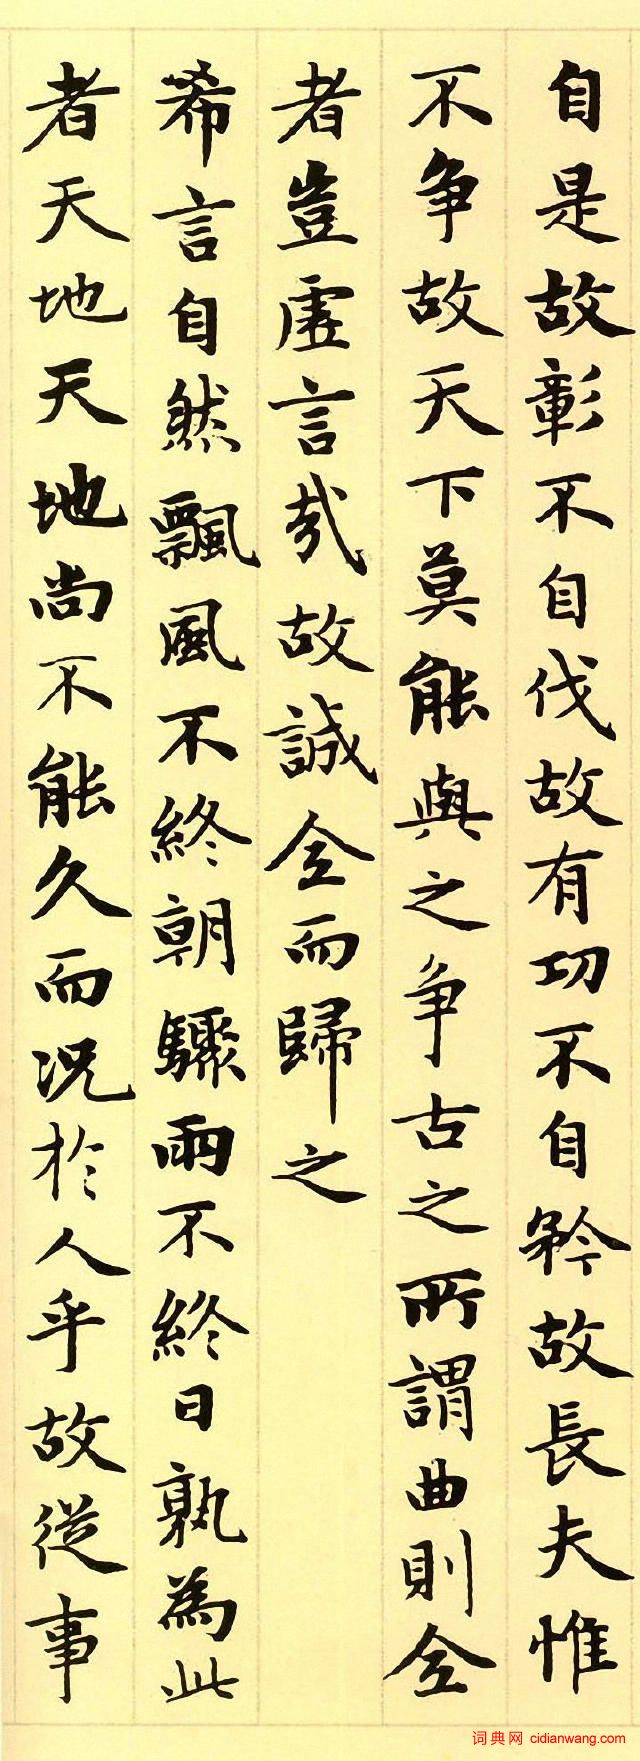 自是故彰不自伐故有功不自矜故長夫惟
不争故天下莫能與之争古之所謂曲則全
者豈虚言哉故誠全而歸之
希言自然飄風不終朝驟雨不終日孰為此
者天地天地尚不能久而况於人乎故從事
词典网 cidianwang.com